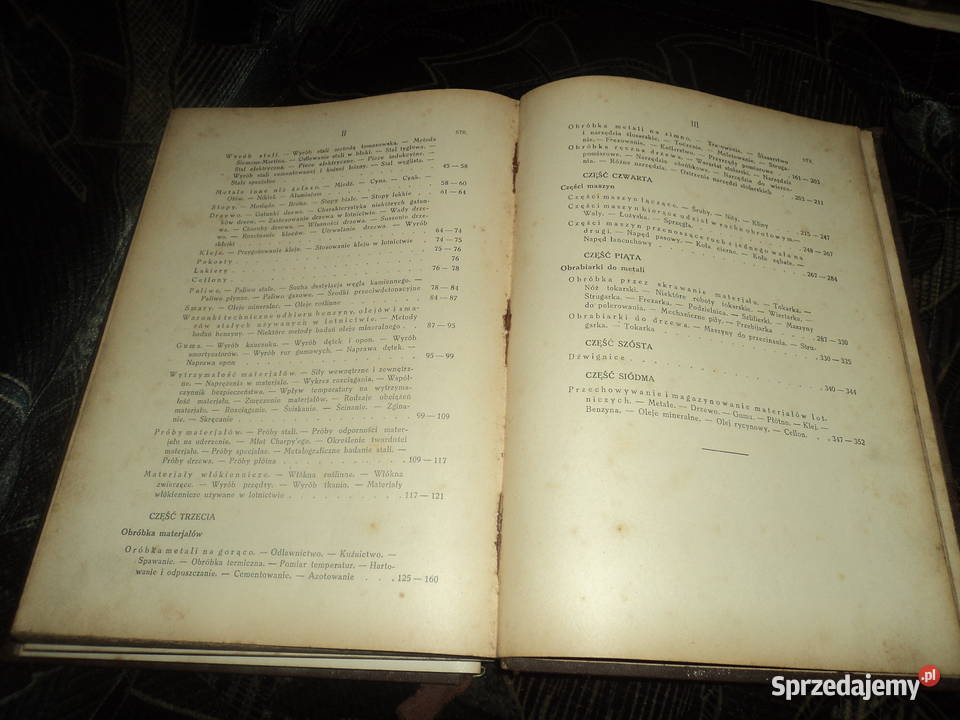 II
STR.
Wyrób stali. — Wyrób stali metodą tomasowską. — Metoda
Siemens-Martina. — Odlewanie stali w bloki. — Stal tyglowa. —
Stal elektryczna. — Piece elektryczne. — Piece indukcyjne. —
Wyrób stali cementowanej i kutej lejny. — Stal węglista. —
Stale specjalne 45 — 58
Metale inne niż żelazo. — Miedź. — Cyna. — Cynk. —
Ołów. — Nikiel. — Aluminjum 58 — 60
Stopy. — Mosiądz. — Bronz. — Stopy białe. — Stopy lekkie 61 — 64
Drzewo. — Gatunki drzewa. — Charakterystyka niektórych gatun-
ków drzew. — Zastosowanie drzewa w lotnictwie. — Wady drze-
wa. — Choroby drzewa. — Własności drzewa. — Suszenie drze-
wa. — Rozcinanie kloców. — Utrwalanie drzewa. — Wyrób
sklejki 64 — 74
Kleje. — Przygotowanie kleju. — Stosowanie kleju w lotnictwie . 74 — 75
Pokosty 75 — 76
Lakiery 76
Cellony 76 — 78
Paliwo. — Paliwo stałe. — Sucha destylacja węgla kamiennego. —
Paliwo płynne. — Paliwo gazowe. — Środki przeciwdetonacyjne 78 — 84
Smary. — Oleje mineralne. — Oleje roślinne 84 — 87
Warunki techniczne odbioru benzyny, olejów i sma-
rów stałych używanych w lotnictwie. — Metody
badań benzyny. — Niektóre metody badań oleju mineralnego . 87 — 95
Guma. — Wyrób kauczuku. — Wyrób dętek i opon. — Wyrób
amortyzatorów. — Wyrób rur gumowych. — Naprawa dętek. —
Naprawa opon 95 — 99
Wytrzymałość materjałów. — Siły wewnętrzne i zewnętrz-
ne. — Naprężenia w materjale. — Wykres rozciągania. — Współ-
czynnik bezpieczeństwa. — Wpływ temperatury na wytrzyma-
łość materjału. — Zmęczenie materjałów. — Rodzaje obciążeń
materjału. — Rozciąganie. — Ściskanie. — Ścinanie. — Zgina-
nie. — Skręcanie 99 — 109
Próby materjałów. — Próby stali. — Próby odporności mater-
jału na uderzenie. — Młot Charpy'ego. — Określenie twardości
materjału. — Próby specjalne. — Metalograficzne badanie stali. —
Próby drzewa. — Próby płótna 109 — 117
Materjały włókiennicze. — Włókna roślinne. — Włókna
zwierzęce. — Wyrób przędzy. — Wyrób tkanin. — Materjały
włókiennicze używane w lotnictwie 117 — 121
CZĘŚĆ TRZECIA
Obróbka materjałów
Oróbka metali na gorąco. — Odlewnictwo. — Kuźnictwo. —
Spawanie. — Obróbka termiczna. — Pomiar temperatur. — Harto-
wanie i odpuszczanie. — Cementowanie. — Azotowanie . . . . 125 — 160
III
STR.
Obróbka metali na zimno. — Trasowanie. — Ślusarstwo
i narzędzia ślusarskie. — Toczenie. — Malotowanie. — Struga-
nie. — Frezowanie. — Kalibrstwo. — Przyrządy pomiarowe 161 — 203
Obróbka ręczna drzewa. — Warsztat stolarski. — Narzędzia
pomiarowe. — Narzędzia ciesielskie. — Narzędzia do wierce-
nia. — Różne narzędzia. — Ostrzenie narzędzi stolarskich 203 — 211
CZĘŚĆ CZWARTA
Części maszyn
Części maszyn łączące. — Śruby. — Nity. — Kliny 215 — 247
Części maszyn biorące udział w ruchu obrotowym. —
Wały. — Łożyska. — Sprzęgła 249 — 267
Części maszyn przenoszące ruch z jednego wału na
drugi. — Napęd pasowy. — Koła cierne. — Koła zębate. —
Napęd łańcuchowy 267 — 284
CZĘŚĆ PIĄTA
Obrabiarki do metali
Obróbka przez skrawanie materjału. — Tokarka. —
Nóż tokarski. — Niektóre roboty tokarskie. — Wiertarka. —
Strugarka. — Frezarka. — Podzielnica. — Szlifierki. — Maszyny
do polerowania. — Mechaniczne piły. — Przebijarka 287 — 330
Obrabiarki do drzewa. — Maszyny do przecinania. — Stru-
garka. — Tokarka 330 — 335
CZĘŚĆ SZÓSTA
Dźwignice 340 — 344
CZĘŚĆ SIÓDMA
Przechowywanie i magazynowanie materjałów lot-
niczych. — Metale. — Drzewo. — Guma. — Płótno. — Klej. —
Benzyna. — Oleje mineralne. — Olej rycynowy. — Cellon. . . 347 — 352
Sprzedajemy.pl